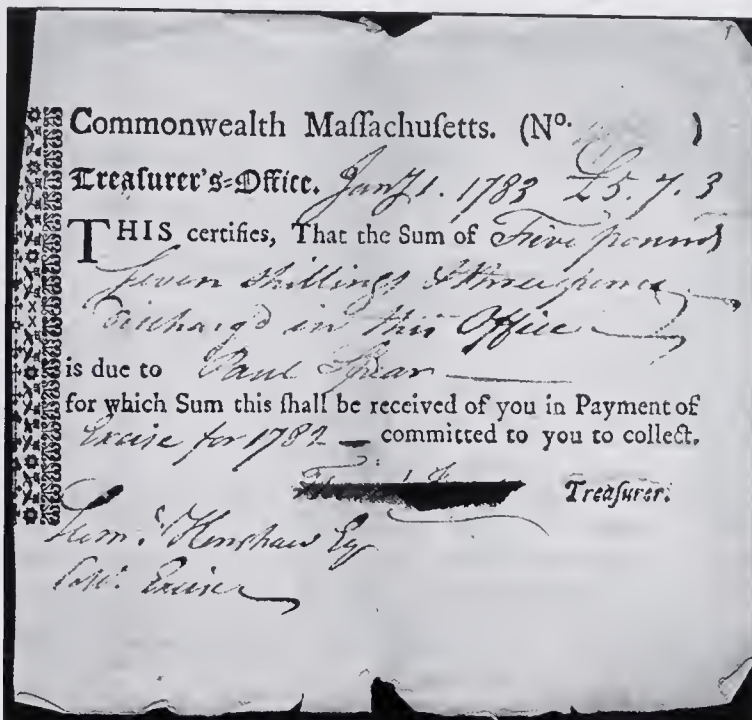 Commonwealth Maſſachuſetts. (Nº. )
Treaſurer's=Office. Jany 1. 1783 £5. 7. 3
THIS certifies, That the Sum of Five pounds
Seven shillings & three pence
discharg'd in this Office
is due to Paul Spear
for which Sum this ſhall be received of you in Payment of
Excise for 1782 — committed to you to collect.
Treaſurer.
Henshaw Esq
Excise